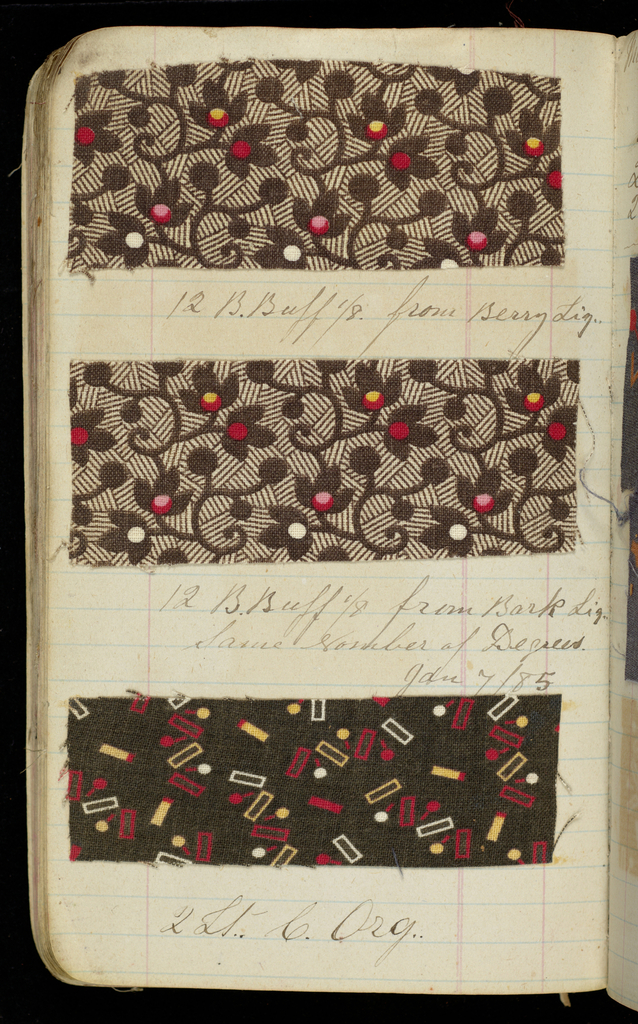 12 B. Buff 1/8. from Berry Liq..
12 B. Buff 1/8 from Bark Liq.
Same Number of Degrees.
Jan 7/85
2 Lt. C. Org..